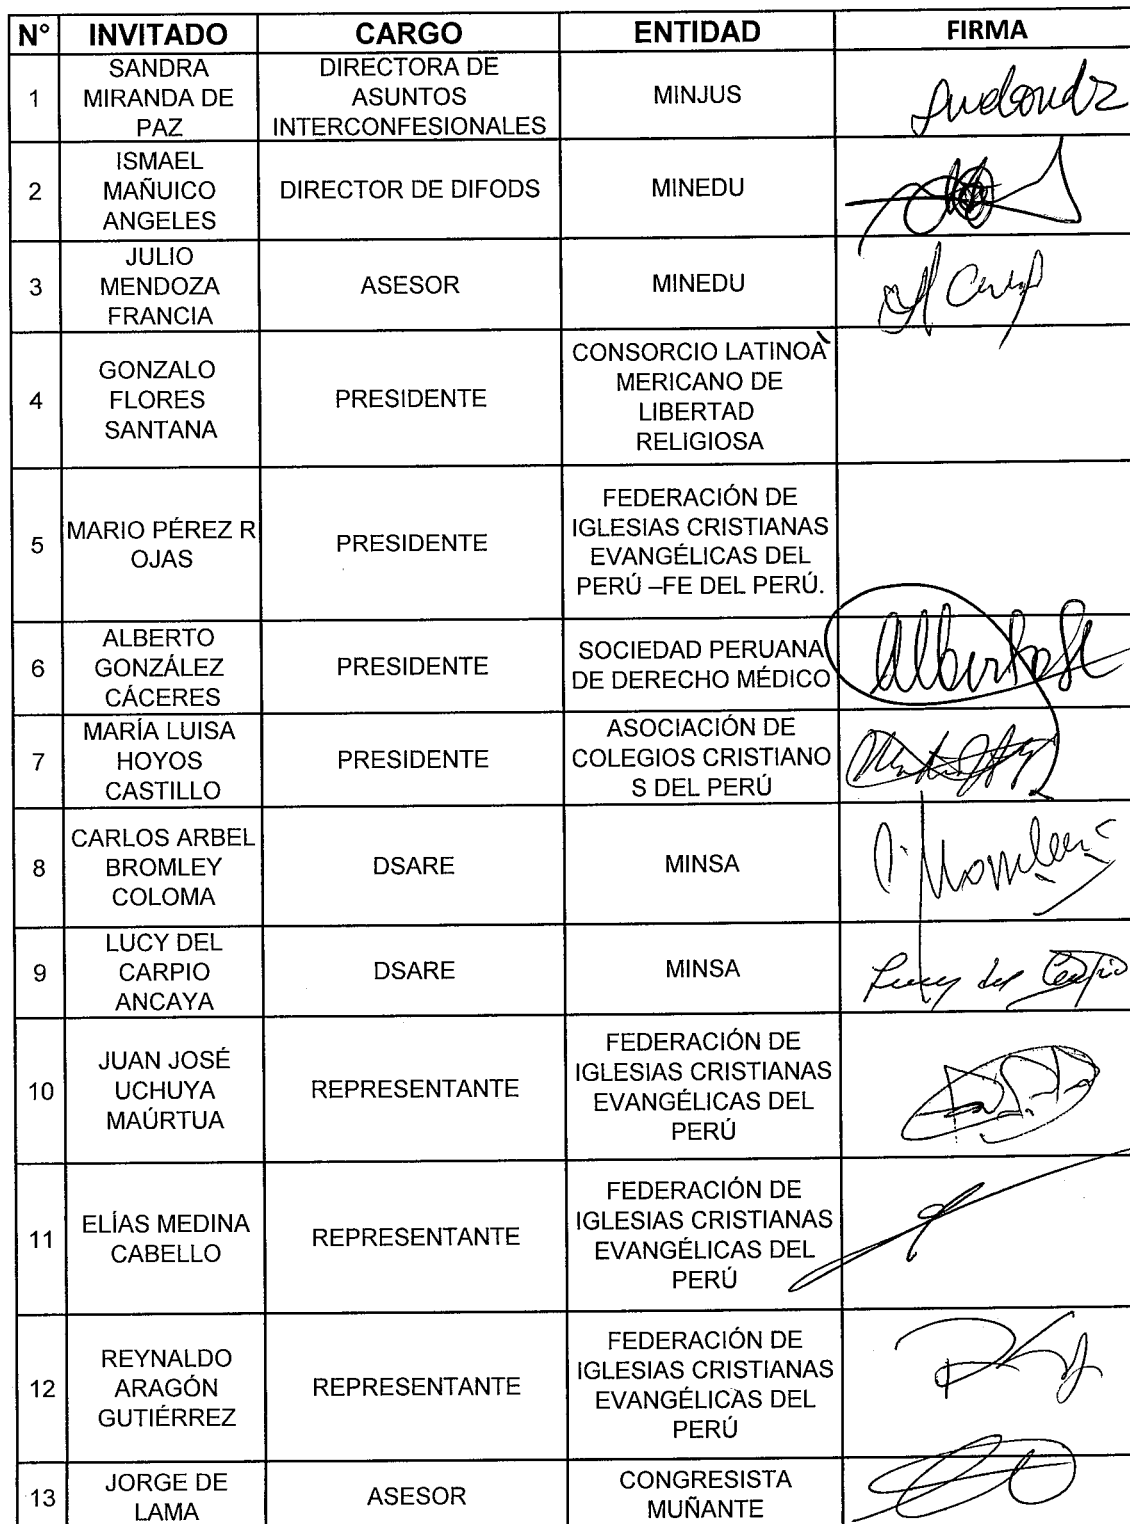 N° INVITADO CARGO ENTIDAD FIRMA
1
SANDRA
MIRANDA DE
PAZ
DIRECTORA DE
ASUNTOS
INTERCONFESIONALES
MINJUS
2
ISMAEL
MAÑUICO
ANGELES
DIRECTOR DE DIFODS
MINEDU
3
JULIO
MENDOZA
FRANCIA
ASESOR
MINEDU
4
GONZALO
FLORES
SANTANA
PRESIDENTE
CONSORCIO LATINOA
MERICANO DE
LIBERTAD
RELIGIOSA
5
MARIO PÉREZ R
OJAS
PRESIDENTE
FEDERACIÓN DE
IGLESIAS CRISTIANAS
EVANGÉLICAS DEL
PERÚ –FE DEL PERÚ.
6
ALBERTO
GONZÁLEZ
CÁCERES
PRESIDENTE
SOCIEDAD PERUANA
DE DERECHO MÉDICO
7
MARÍA LUISA
HOYOS
CASTILLO
PRESIDENTE
ASOCIACIÓN DE
COLEGIOS CRISTIANO
S DEL PERÚ
8
CARLOS ARBEL
BROMLEY
COLOMA
DSARE
MINSA
9
LUCY DEL
CARPIO
ANCAYA
DSARE
MINSA
Lucy del Carpio
10
JUAN JOSÉ
UCHUYA
MAÚRTUA
REPRESENTANTE
FEDERACIÓN DE
IGLESIAS CRISTIANAS
EVANGÉLICAS DEL
PERÚ
11
ELÍAS MEDINA
CABELLO
REPRESENTANTE
FEDERACIÓN DE
IGLESIAS CRISTIANAS
EVANGÉLICAS DEL
PERÚ
12
REYNALDO
ARAGÓN
GUTIÉRREZ
REPRESENTANTE
FEDERACIÓN DE
IGLESIAS CRISTIANAS
EVANGÉLICAS DEL
PERÚ
13
JORGE DE
LAMA
ASESOR
CONGRESISTA
MUÑANTE